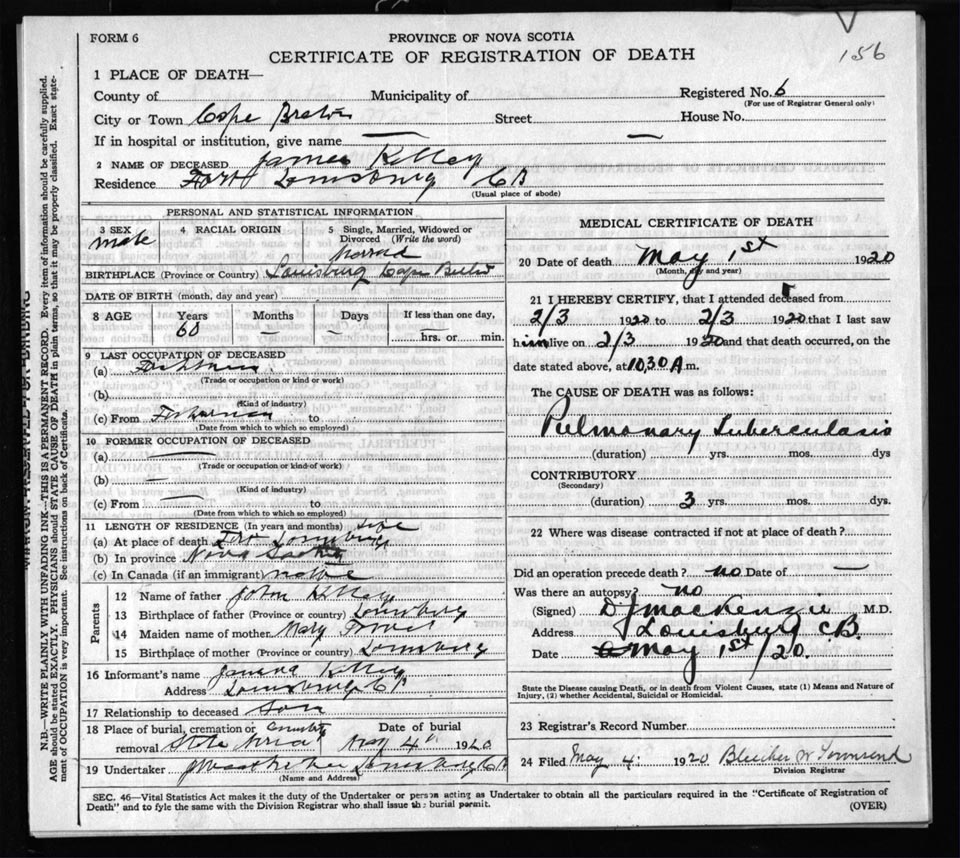 FORM 6
PROVINCE OF NOVA SCOTIA
156
CERTIFICATE OF REGISTRATION OF DEATH
1 PLACE OF DEATH—
County of Municipality of Registered No. 6
(For use of Registrar General only)
City or Town Cape Breton Street House No.
If in hospital or institution, give name —
2 NAME OF DECEASED James Kelley
Residence Louisburg CB
(Usual place of abode)
PERSONAL AND STATISTICAL INFORMATION
3 SEX 4 RACIAL ORIGIN 5 Single, Married, Widowed or Divorced (Write the word)
male
BIRTHPLACE (Province or Country) Louisburg Cape Breton
DATE OF BIRTH (month, day and year)
8 AGE Years Months Days If less than one day,
60 — — — hrs. or min.
9 LAST OCCUPATION OF DECEASED
(a)
(Trade or occupation or kind of work)
(b)
(Kind of industry)
(c) From Fisherman to
(Date from which to which so employed)
10 FORMER OCCUPATION OF DECEASED
(a) —
(Trade or occupation or kind of work)
(b) —
(Kind of industry)
(c) From — to
(Date from which to which so employed)
11 LENGTH OF RESIDENCE (In years and months)
(a) At place of death Louisburg
(b) In province Nova Scotia
(c) In Canada (if an immigrant) native
Parents
12 Name of father John Kelley
13 Birthplace of father (Province or country) Louisburg
14 Maiden name of mother Mary
15 Birthplace of mother (Province or country) Louisburg
16 Informant's name Kelley
Address Louisburg CB
17 Relationship to deceased son
18 Place of burial, cremation or removal Date of burial
May 4th 1920
19 Undertaker Louisburg CB
(Name and Address)
MEDICAL CERTIFICATE OF DEATH
20 Date of death May 1st 1920
(Month, day and year)
21 I HEREBY CERTIFY, that I attended deceased from
2/3 1920 to 2/3 1920 that I last saw
him alive on 2/3 1920 and that death occurred, on the
date stated above, at 10.30 A m.
The CAUSE OF DEATH was as follows:
Pulmonary Tuberculosis
(duration) yrs. mos. dys
CONTRIBUTORY
(Secondary)
(duration) 3 yrs. mos. dys.
22 Where was disease contracted if not at place of death?
Did an operation precede death? no Date of —
Was there an autopsy? no
(Signed) D J MacKenzie M.D.
Address Louisburg CB.
Date May 1st/20.
State the Disease causing Death, or in death from Violent Causes, state (1) Means and Nature of
Injury, (2) whether Accidental, Suicidal or Homicidal.
23 Registrar's Record Number
24 Filed May 4 1920 Townsend
Division Registrar
SEC. 46—Vital Statistics Act makes it the duty of the Undertaker or person acting as Undertaker to obtain all the particulars required in the "Certificate of Registration of
Death" and to fyle the same with the Division Registrar who shall issue the burial permit. (OVER)
N.B.—WRITE PLAINLY WITH UNFADING INK—THIS IS A PERMANENT RECORD. Every item of information should be carefully supplied.
AGE should be stated EXACTLY. PHYSICIANS should STATE CAUSE OF DEATH in plain terms, so that it may be properly classified. Exact state-
ment of OCCUPATION is very important. See instructions on back of Certificate.